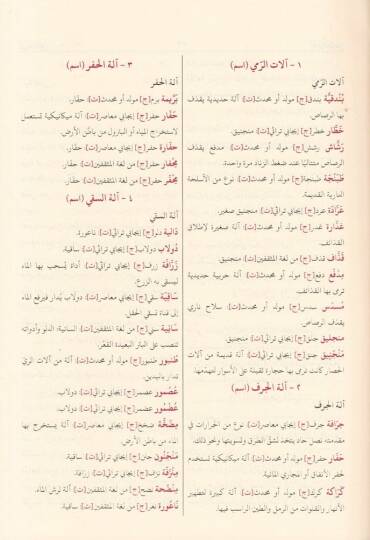 ١ - آلات الرّمي (اسم)
آلات الرّمي
بُنْدقيَّة بندق[ج] مولد أو محدث[ت]: آلة حديدية يقذف
بها الرصاص.
خَطَّار خطر[ج] إيجابي تراثي[ت]: منجنيق.
رَشَّاش رشش[ج] مولد أو محدث[ت]: مدفع يقذف
الرصاص متتاليًا عند ضغط الزناد مرة واحدة.
طَبَنْجَة طبنجة[ج] مولد أو محدث[ت]: نوع من الأسلحة
النارية القديمة.
عَرَّادَة عرد[ج] إيجابي تراثي[ت]: منجنيق صغير.
غدَّارة غدر[ج] مولد أو محدث[ت]: آلة صغيرة لإطلاق
القذائف.
قَذَّاف قذف[ج] من لغة المثقفين[ت]: منجنيق.
مِدْفَع دفع[ج] مولد أو محدث[ت]: آلة حربية حديدية
ترمى بها القذائف.
مُسَدَّس سدس[ج] مولد أو محدث[ت]: سلاح ناري
يقذف الرصاص.
منجليق جنق[ج] إيجابي تراثي[ت]: منجنيق.
مَنْجَنيق جنق[ج] إيجابي تراثي[ت]: آلة قديمة من آلات
الحصار كانت ترمى بها حجارة ثقيلة على الأسوار لتهدّمها.
٢ - آلة الجرف (اسم)
آلة الجرف
جرّافة جرف[ج] إيجابي معاصر[ت]: نوع من الجرارات في
مقدمته نصل حاد يتخذ لشق الطرق وتسويتها ونحو ذلك.
حفّار حفر[ج] مولد أو محدث[ت]: آلة ميكانيكية تستخدم
لحفر الأنفاق أو المجاري المائية.
كَرَّاكة كرك[ج] مولد أو محدث[ت]: آلة كبيرة لتطهير
الأنهار والقنوات من الرمل والطين الراسب فيها.
٣ - آلة الحفر (اسم)
آلة الحفر
بَرِّيمة برم[ج] مولد أو محدث[ت]: حفّار.
حَفّار حفر[ج] إيجابي معاصر[ت]: آلة ميكانيكية تستعمل
لاستخراج المياه أو البترول من باطن الأرض.
حفّارة حفر[ج] إيجابي معاصر[ت]: حفّار.
مِحْفار حفر[ج] من لغة المثقفين[ت]: حفّار.
مِحْفَر حفر[ج] من لغة المثقفين[ت]: حفّار.
٤ - آلة السقي (اسم)
آلة السقي
دَالية دلو[ج] إيجابي تراثي[ت]: ناعورة.
دُولاب دولاب[ج] إيجابي تراثي[ت]: ساقية.
زَرَّافَة زرف[ج] إيجابي تراثي[ت]: أداة يُسحب بها الماء
ليسقى به الزرع.
سَاقِيَة سقي[ج] إيجابي معاصر[ت]: دولاب يُدار فيرفع الماء
إلى قناة تسقي الحقل.
سَانية سني[ج] من لغة المثقفين[ت]: السانية: الدلو وأدواته
تنصب على البئر البعيدة القَعْر.
طُنبور طنبور[ج] مولد أو محدث[ت]: آلة من آلات الريّ
تدار باليدين.
عُصْمور عصمر[ج] إيجابي تراثي[ت]: دولاب.
عُضْمُور عضمر[ج] إيجابي تراثي[ت]: دولاب.
مِضَخَّة ضخخ[ج] إيجابي معاصر[ت]: آلة يستخرج بها
الماء من باطن الأرض.
مَنْجَنُون جنن[ج] إيجابي تراثي[ت]: ساقية.
مِنْزَفَة نزف[ج] إيجابي تراثي[ت]: زرافة.
مِنْضَحة نضح[ج] من لغة المثقفين[ت]: آلة لرش الماء.
ناعُورة نعر[ج] من لغة المثقفين[ت]: ساقية.